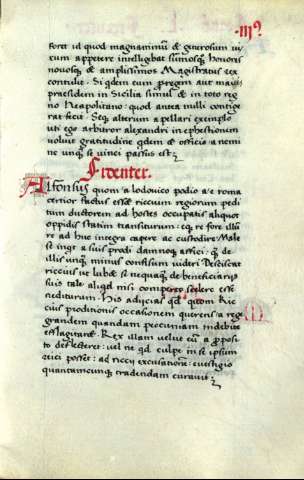 ·III·
foret id quod magnaminũ & generosum uy
rum appetere intelligebat sumosq̃ honores
nouosq̃ & amplissimos Magistratus ex
contulit. Si qdem eum pregem aut maui
praesidem in Sicilia simul & in toto reg
no Neapolitano: quod antea nulli contige
rat fecit. Seq̃ alterum apellari exemplo
uti ego arbitror alexandri in ephestionem
uoluit gratitudine qdem & officio a nemi
ne unq̃ se uinci passus est
Fidenter.
Alfonsus quom a lodouico podio a c roma
certior factus esset riccium regiorum pedi
tum ductorem ad hostes occupatis aliquot
oppidis statim transiturum: eq̃ re fore illu
re ad huc integra capere ac custodire. Male
se ingt a suis prodi damnoq̃ affici: q̃ de
illis unq̃ minus confisum uideri. Desciscat
riccius ut lubet si nequaq̃ de beneficiarijs
suis tale aliqd nisi comperto scelere esse
crediturum. His adijcias qd quom Ric
cius proditionis occasionem querens a rege
grandem quandam pecuniam indebite
efflagitaret. Rex illam uelut eũ a propo
sito deflecteret: uel ne qd culpe in se ipsum
reici posset: ad riccij excusationem: euestigio
quantamcunq̃ tradendam curauit